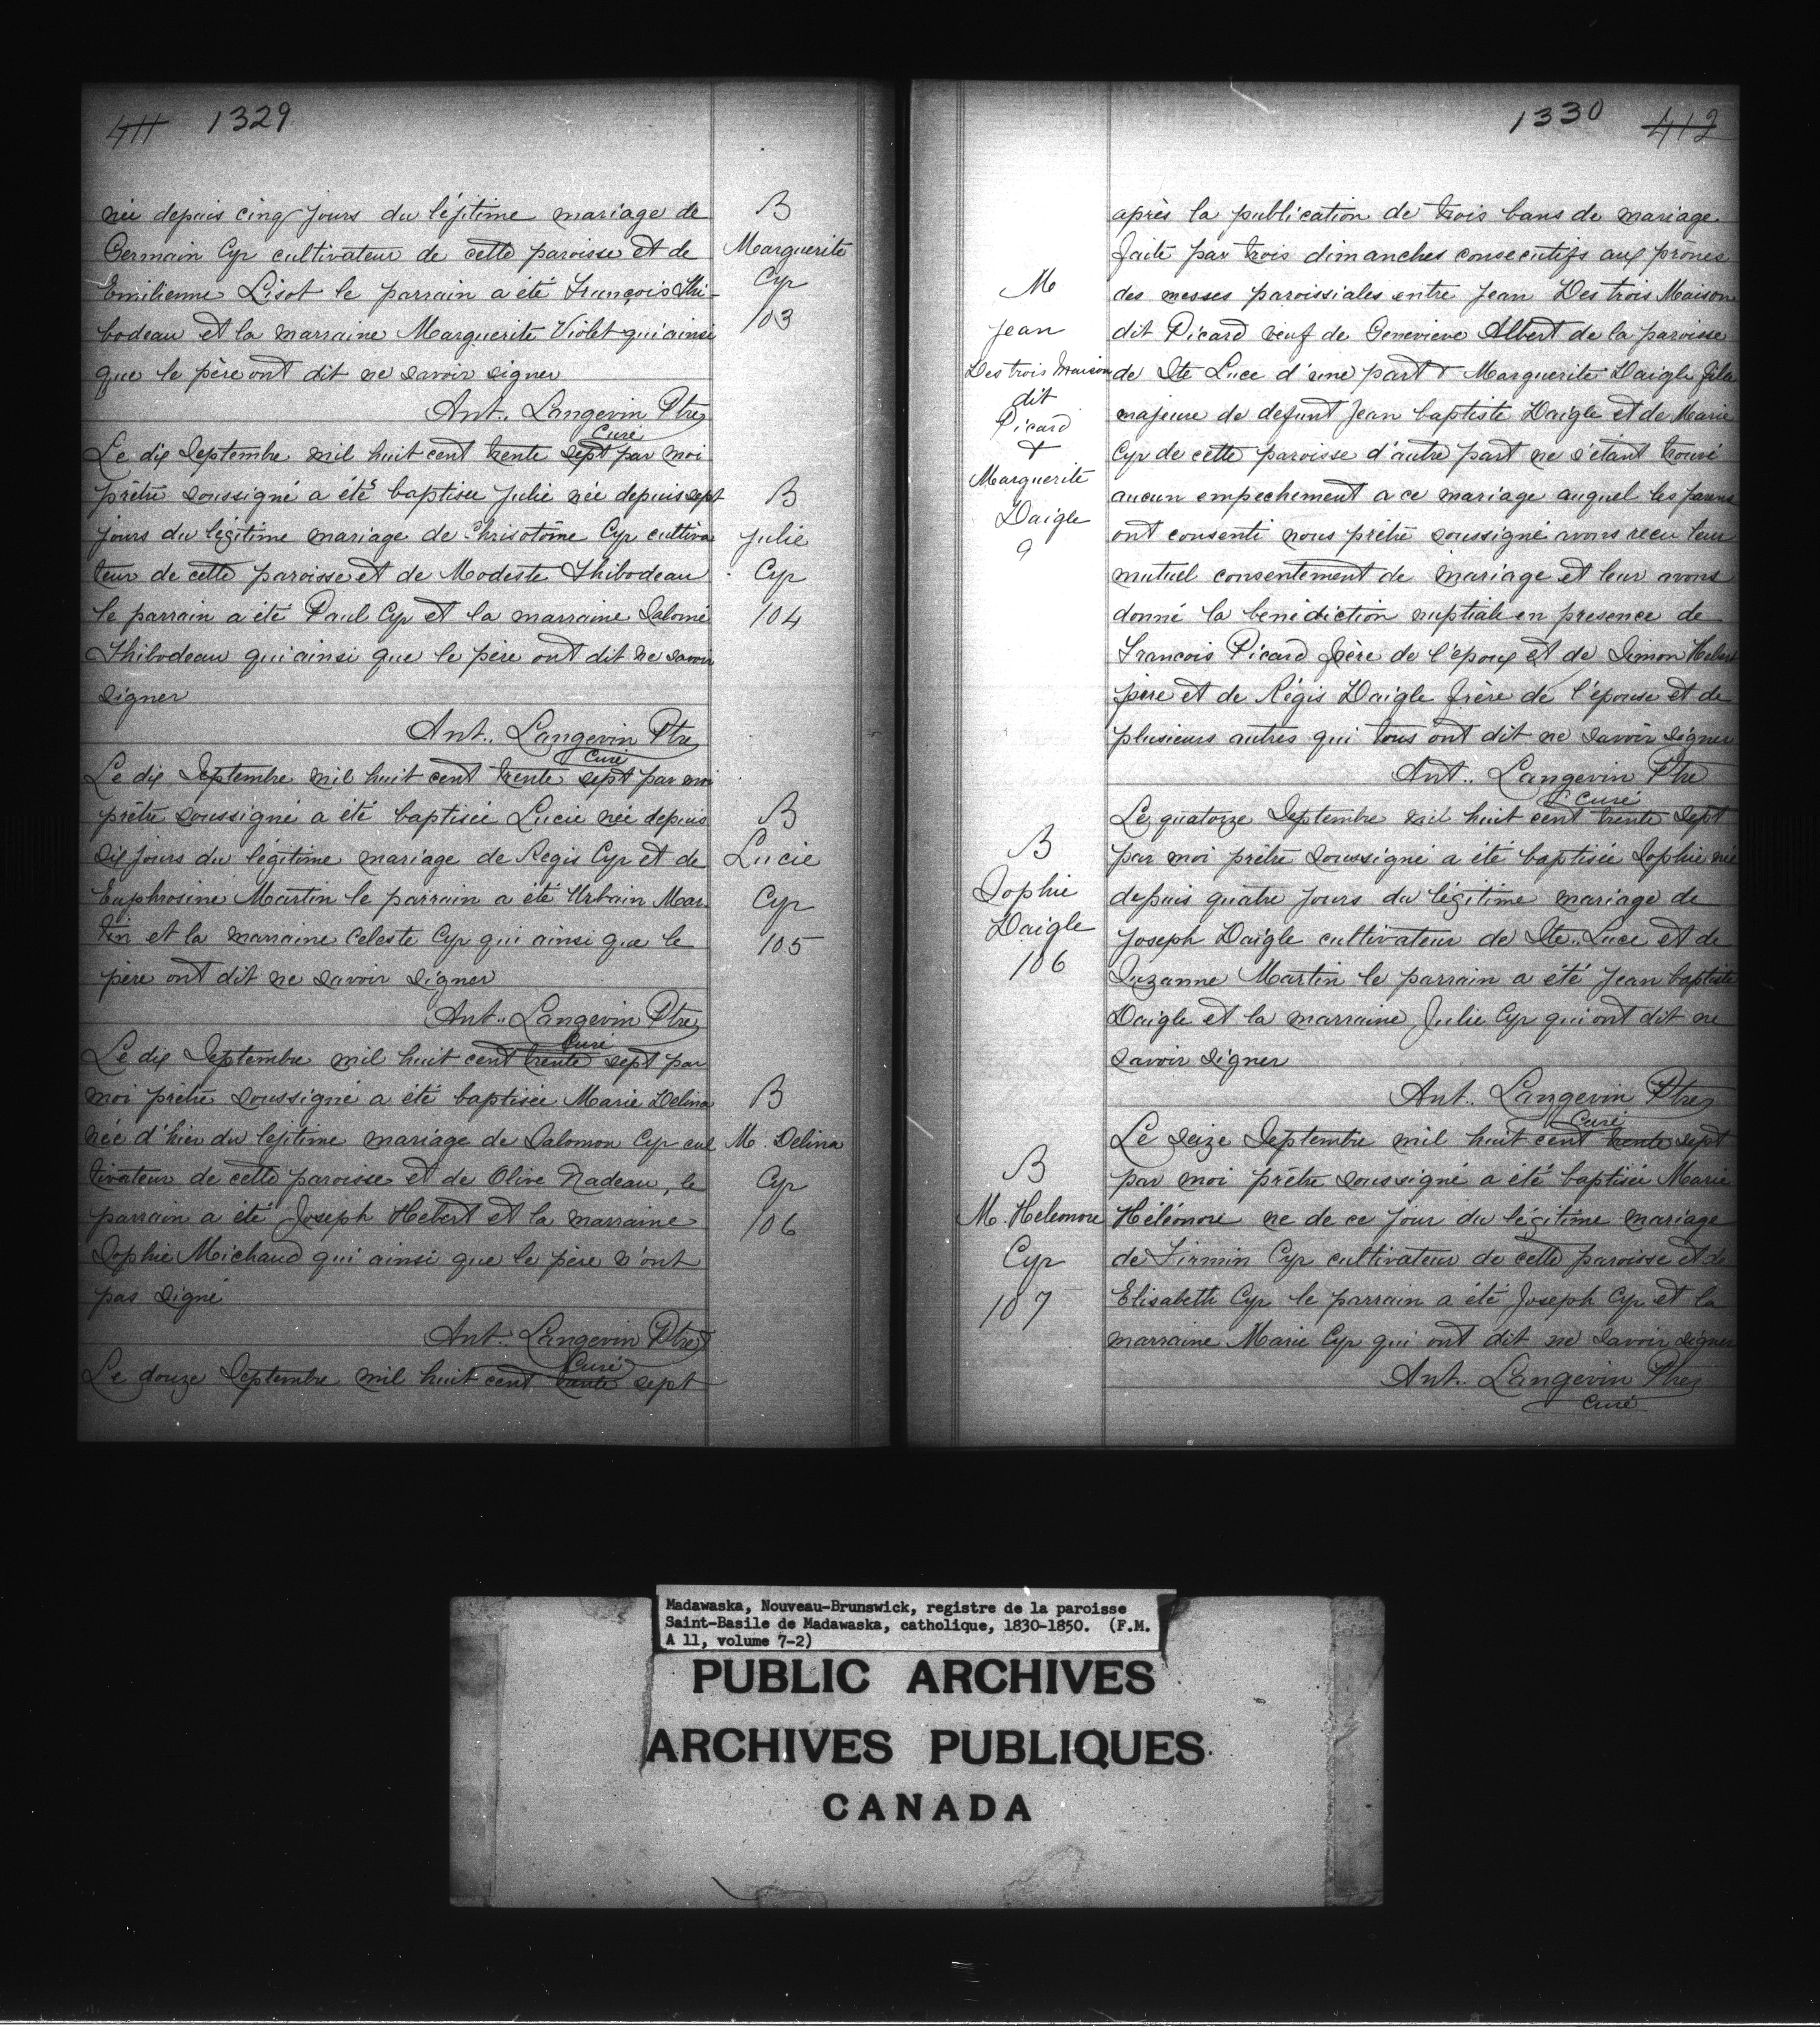 411 1329
née depuis cinq jours du léjitime mariage de
Germain Cyr cultivateur de cette paroisse et de
Emilienne Lisot le parrain a été François Thi-
bodeau et la marraine Marguerite Violet qui ainsi
que le père ont dit ne savoir signer
Ant. Langevin Ptre
Curé
B
Marguerite
Cyr
103
Le dix Septembre mil huit cent trente sept par moi
prêtre soussigné a été baptisee Julie née depuis sept
jours du légitime mariage de Chrisotôme Cyr cultiva
teur de cette paroisse et de Modeste Thibodeau
le parrain a été Paul Cyr et la marraine Salomé
Thibodeau qui ainsi que le père ont dit ne savoir
signer
Ant.. Langevin Ptre
Curé
B
Julie
Cyr
104
Le dix Septembre mil huit cent trente sept par moi
prêtre soussigné a été baptisée Lucie née depuis
six jours du légitime mariage de Regis Cyr et de
Euphrosine Martin le parrain a été Urbain Mar-
tin et la marraine Celeste Cyr qui ainsi que le
père ont dit ne savoir signer
Ant.. Langevin Ptre
Curé
B
Lucie
Cyr
105
Le dix Septembre mil huit cent trente sept par
moi prêtre soussigné a été baptisée Marie Delina
née d'hier du lejitime mariage de Salomon Cyr cul
tivateur de cette paroisse et de Olive Nadeau, le
parrain a été Joseph Hebert et la marraine
Sophie Michaud qui ainsi que le père n'ont
pas signé
Ant. Langevin Ptre
Curé
B
M. Delina
Cyr
106
Le douze Septembre mil huit cent trente sept
1330 412
après la publication de trois bans de mariage
faite par trois dimanches consecutifs aux prônes
des messes paroissiales entre Jean Des trois Maison
dit Picard veuf de Genevieve Albert de la paroisse
de Ste Luce d'une part & Marguerite Daigle fille
majeure de defunt Jean baptiste Daigle et de Marie
Cyr de cette paroisse d'autre part ne s'étant trouvé
aucun empechement a ce mariage auquel les parens
ont consenti nous prêtre soussigné avons recu leur
mutuel consentement de mariage et leur avons
donné la bénédiction nuptiale en presence de
Francois Picard frère de l'époux et de Simon Hebert
père et de Régis Daigle frère de l'épouse et de
plusieurs autres qui tous ont dit ne savoir signer
Ant.. Langevin Ptre
Curé
M
Jean
Des trois Maison
dit
Picard
&
Marguerite
Daigle
9
Le quatorze Septembre mil huit cent trente sept
par moi prêtre soussigné a été baptisée Sophie née
depuis quatre jours du légitime mariage de
Joseph Daigle cultivateur de Ste.. Luce et de
Suzanne Martin le parrain a été Jean baptiste
Daigle et la marraine Julie Cyr qui ont dit ne
savoir signer
Ant.. Langevin Ptre
Curé
B
Sophie
Daigle
106
Le seize Septembre mil huit cent trente sept
par moi prêtre soussigné a été baptisée Marie
Héléonore ne de ce jour du légitime mariage
de Firmin Cyr cultivateur de cette paroisse et de
Elisabeth Cyr le parrain a été Joseph Cyr et la
marraine Marie Cyr qui ont dit ne savoir signer
Ant.. Langevin Ptre
Curé
B
M. Heleonore
Cyr
107
Madawaska, Nouveau-Brunswick, registre de la paroisse
Saint-Basile de Madawaska, catholique, 1830-1850. (F.M.
A 11, volume 7-2)
PUBLIC ARCHIVES
ARCHIVES PUBLIQUES
CANADA